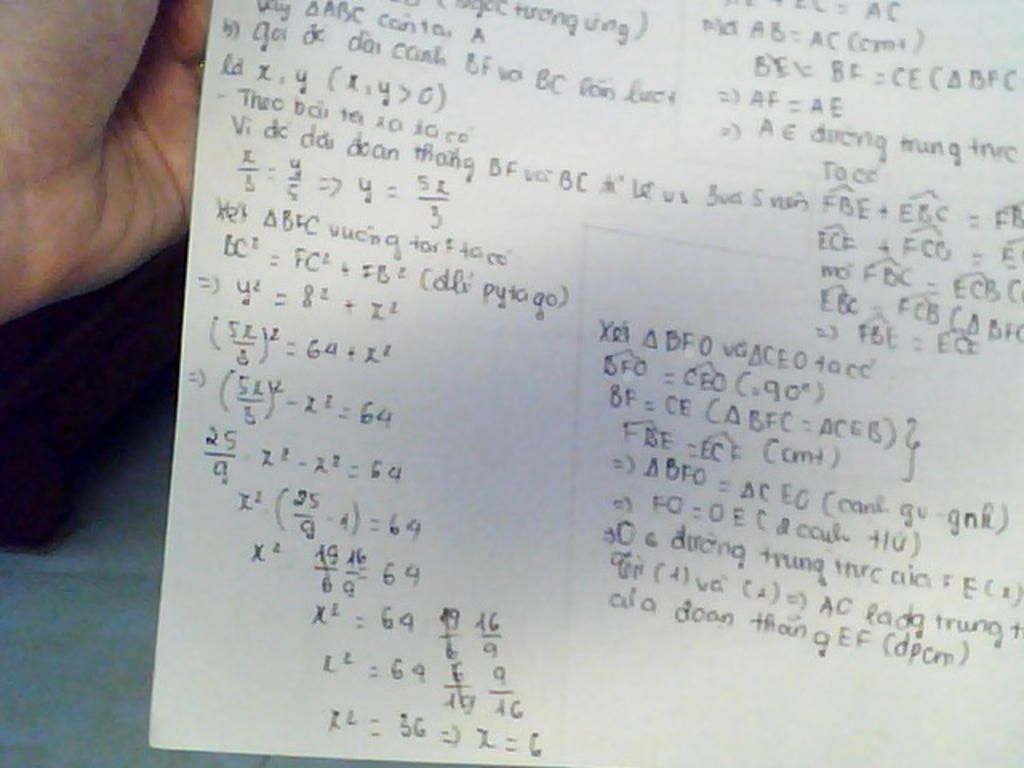 vậy ΔABC cân tại A
b) gọi độ dài cạnh BF và BC lần lượt
là x, y (x, y > 0)
- Theo bài ra ta có
Vì độ dài đoạn thẳng BF và BC tỉ lệ vs 3 và 5 nên
x/3 = y/5 => y = 5x/3
Xét ΔBFC vuông tại F ta có
BC² = FC² + FB² (đlí pytago)
=> y² = 8² + x²
(5x/3)² = 64 + x²
=> (5x/3)² - x² = 64
25/9 · x² - x² = 64
x² (25/9 - 1) = 64
x² 16/9 = 64
x² = 64 16/9
x² = 64 9/16
x² = 36 => x = 6
= AC
mà AB = AC (cmt)
BF = CE (ΔBFC
=> AF = AE
=> A ∈ đường trung trực
Ta có
FBE + EBC = FB
ECF + FCB = E
mà FBC = ECB (
EBC = FCB (ΔBFC
=> FBE = ECF
Xét ΔBFO và ΔCEO ta có
BFO = CEO (=90°)
BF = CE (ΔBFC = ΔCEB)
FBE = ECF (cmt)
=> ΔBFO = ΔCEO (cạnh gv - gnk)
=> FO = OE (2 cạnh t/ứ)
=> O ∈ đường trung trực của FE (2)
Từ (1) và (2) => AO là đg trung t
của đoạn thẳng EF (đpcm)